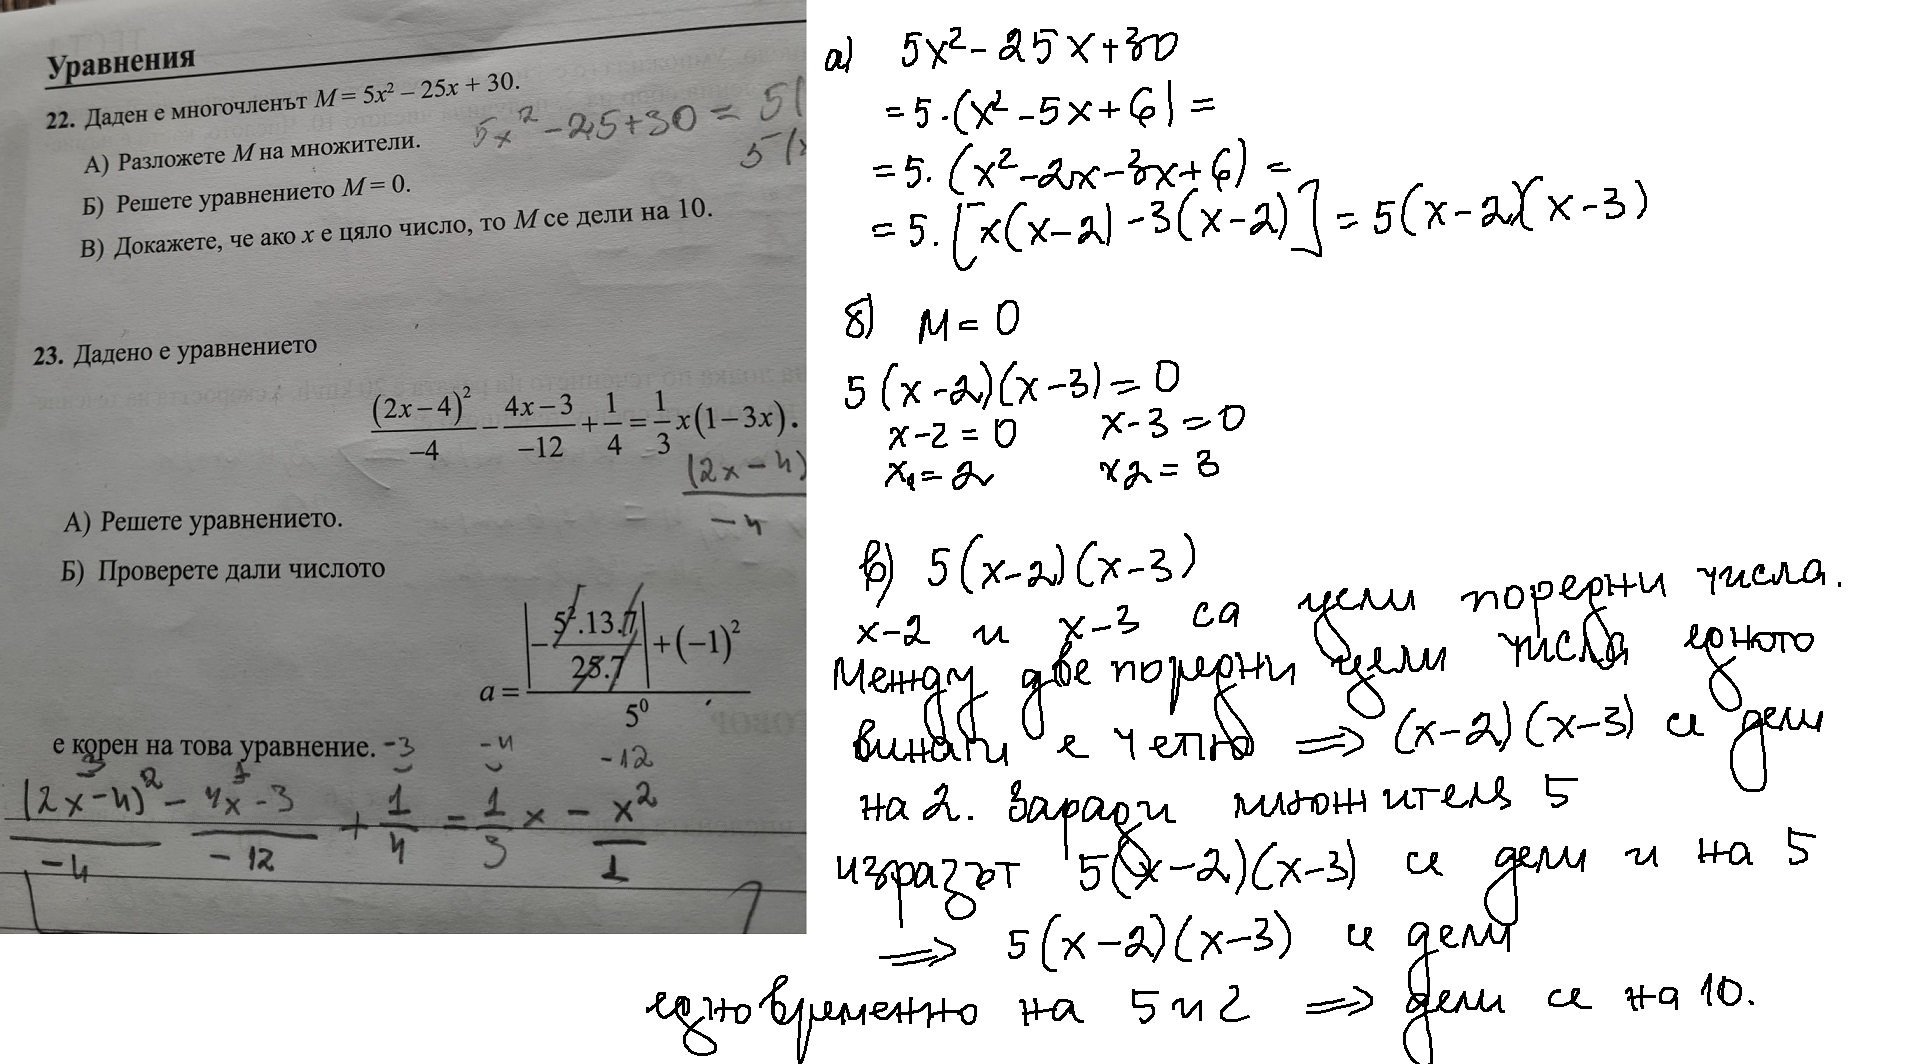 Уравнения
22. Даден е многочленът M = 5x² – 25x + 30.
5x² - 25 + 30 = 5(
А) Разложете M на множители.
5(x
Б) Решете уравнението M = 0.
В) Докажете, че ако x е цяло число, то M се дели на 10.
23. Дадено е уравнението
(2x – 4)²/–4 – 4x – 3/–12 + 1/4 = 1/3 x(1 – 3x).
(2x - 4)/-4
А) Решете уравнението.
Б) Проверете дали числото
a = (|– 5².13.7/25.7| + (–1)²)/5⁰
е корен на това уравнение.
-3 -4 -12
3 1
(2x-4)²/-4 - 4x-3/-12 + 1/4 = 1/3 x - x²/1
а) 5x² - 25x + 30
= 5.(x² - 5x + 6) =
= 5.(x² - 2x - 3x + 6) =
= 5.[x(x-2) - 3(x-2)] = 5(x-2)(x-3)
б) M = 0
5(x-2)(x-3) = 0
x-2 = 0 x-3 = 0
x₁ = 2 x2 = 3
в) 5(x-2)(x-3)
x-2 и x-3 са цели поредни числа.
Между две поредни цели числа едното
винаги е четно ⟹ (x-2)(x-3) се дели
на 2. Заради множителя 5
изразът 5(x-2)(x-3) се дели и на 5
⟹ 5(x-2)(x-3) се дели
едновременно на 5 и 2 ⟹ дели се на 10.